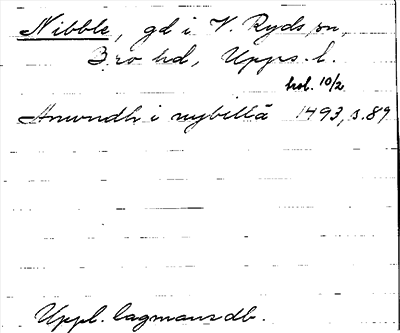 Nibble, gd i V. Ryds sn,
Bro hd, Upps. l.
hol. 10/2
Anundh i nybillä 1493, s. 89
Uppl. lagmansdb.